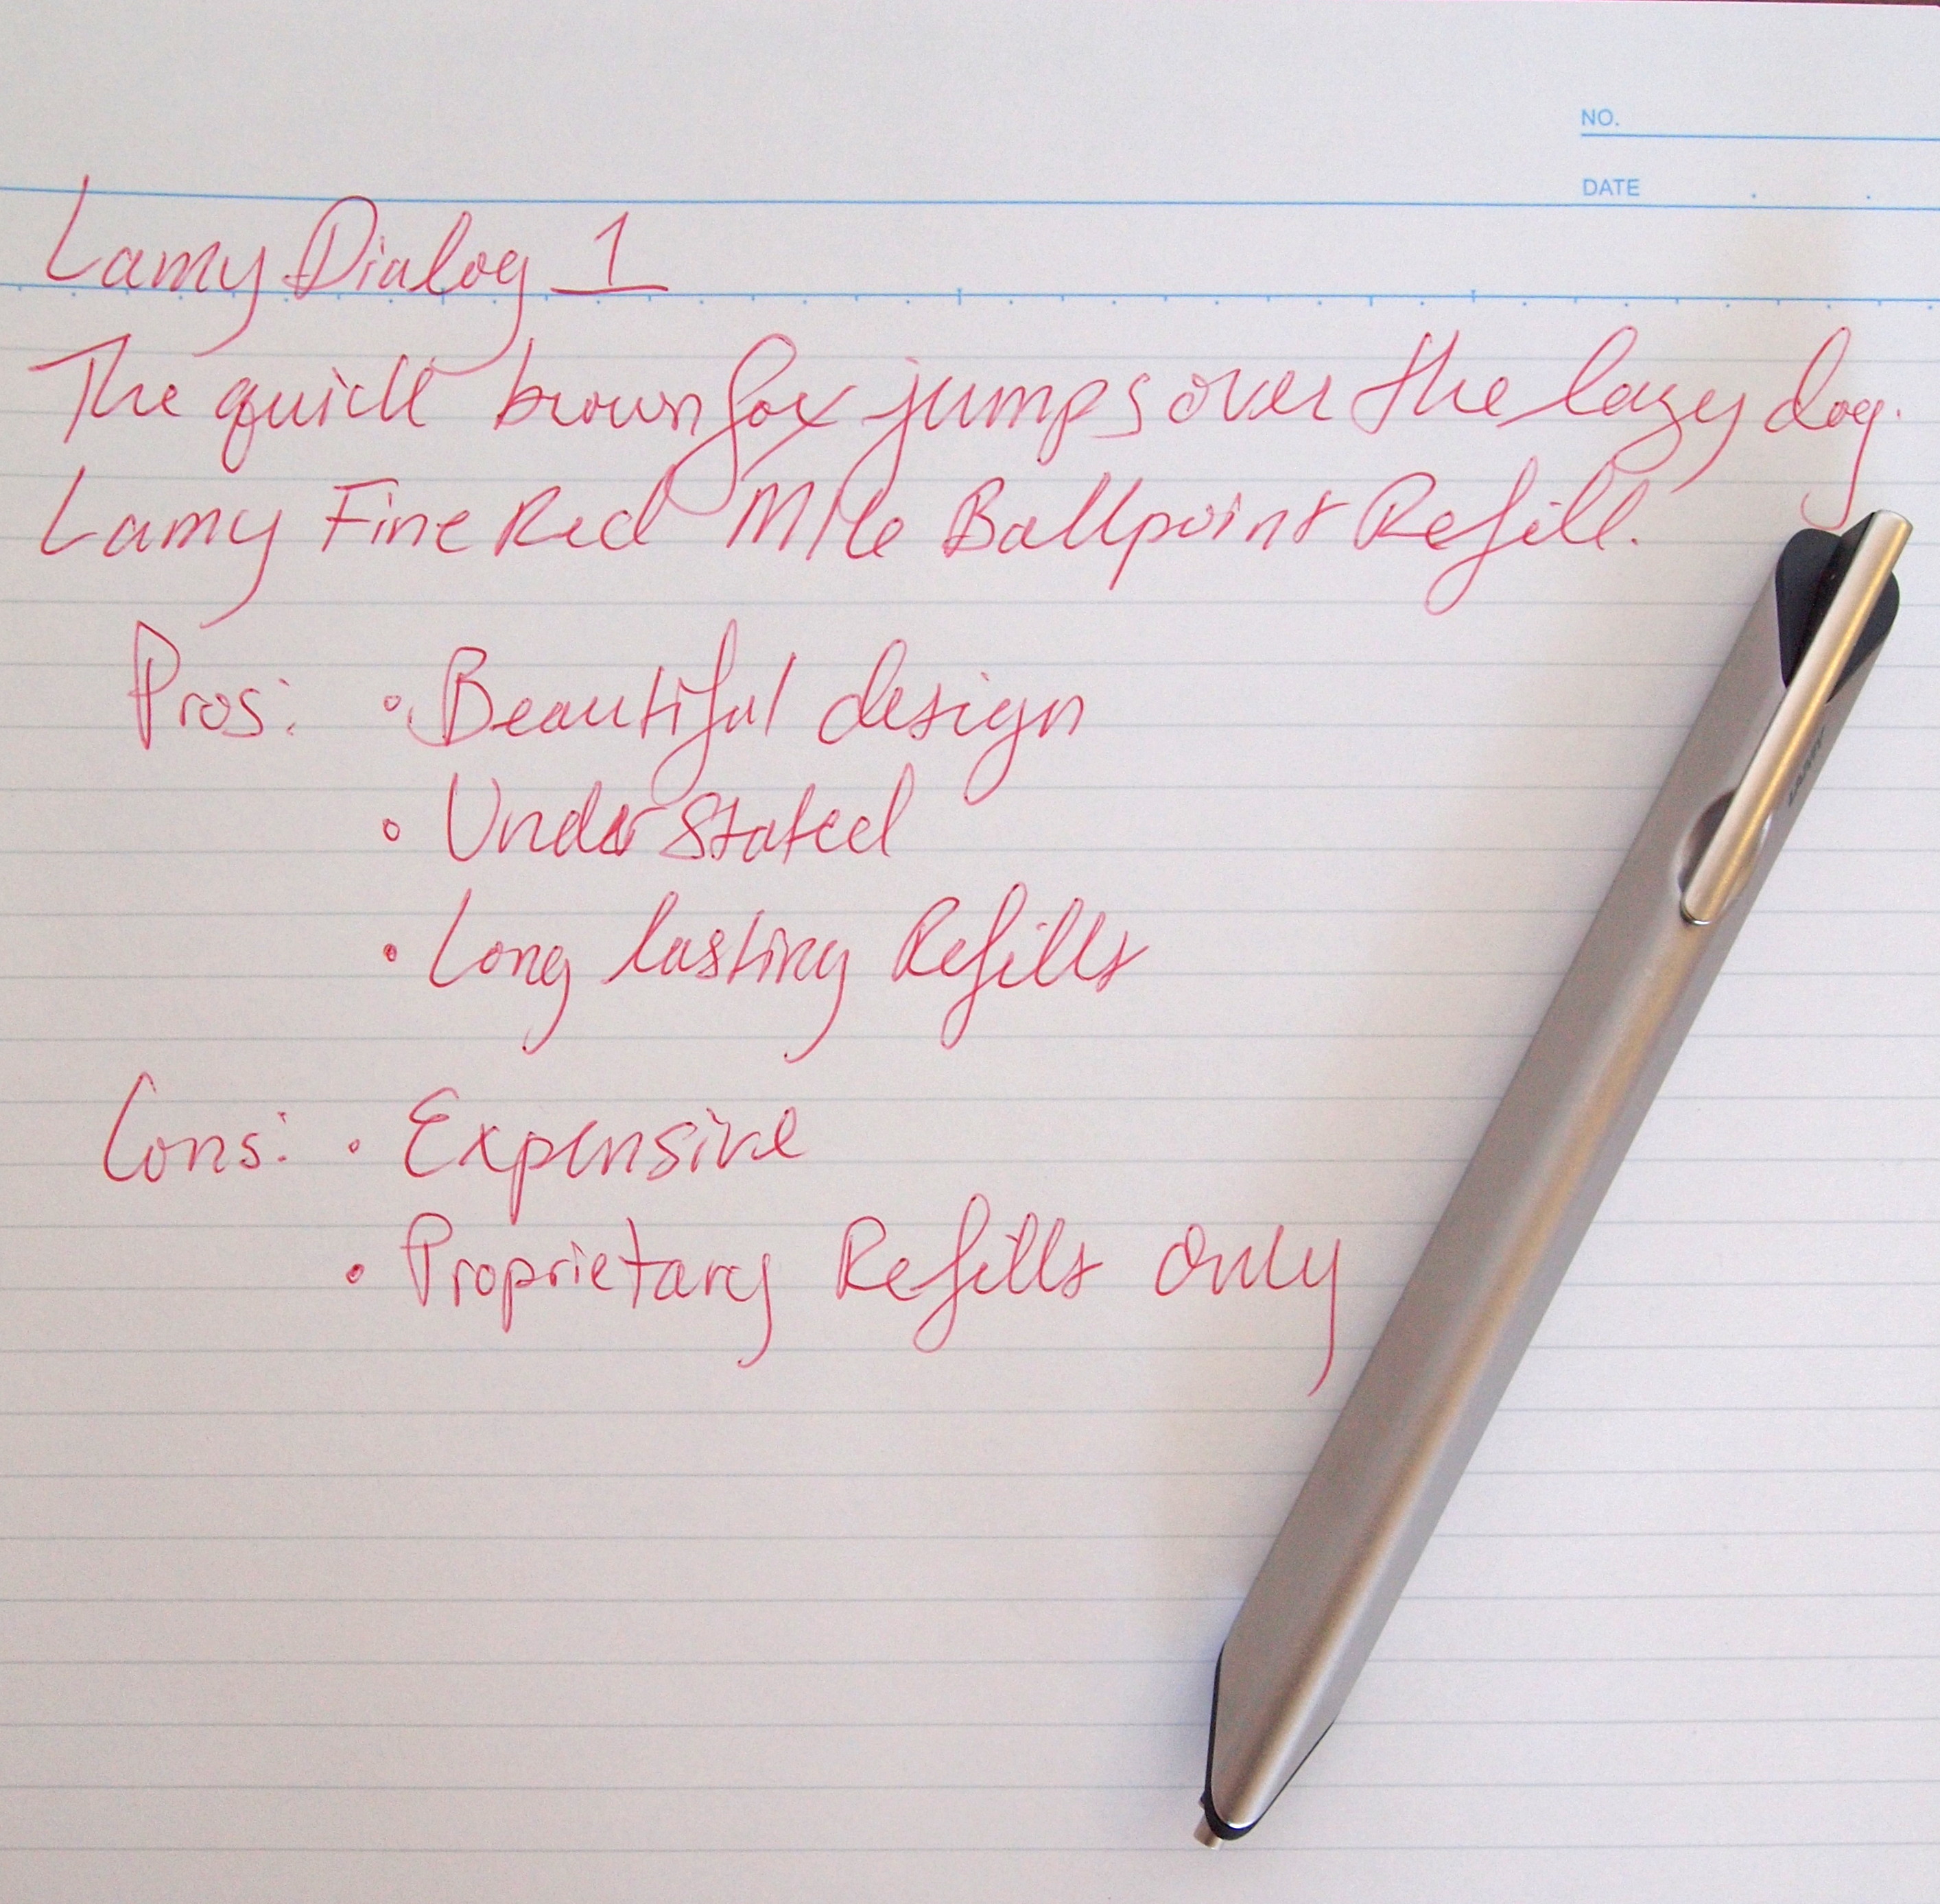 NO.
DATE
Lamy Dialog 1
The quick brown fox jumps over the lazy dog.
Lamy Fine Red M16 Ballpoint Refill.
Pros: • Beautiful design
• Understated
• Long lasting Refills
Cons: • Expensive
• Proprietary Refills only
LAMY